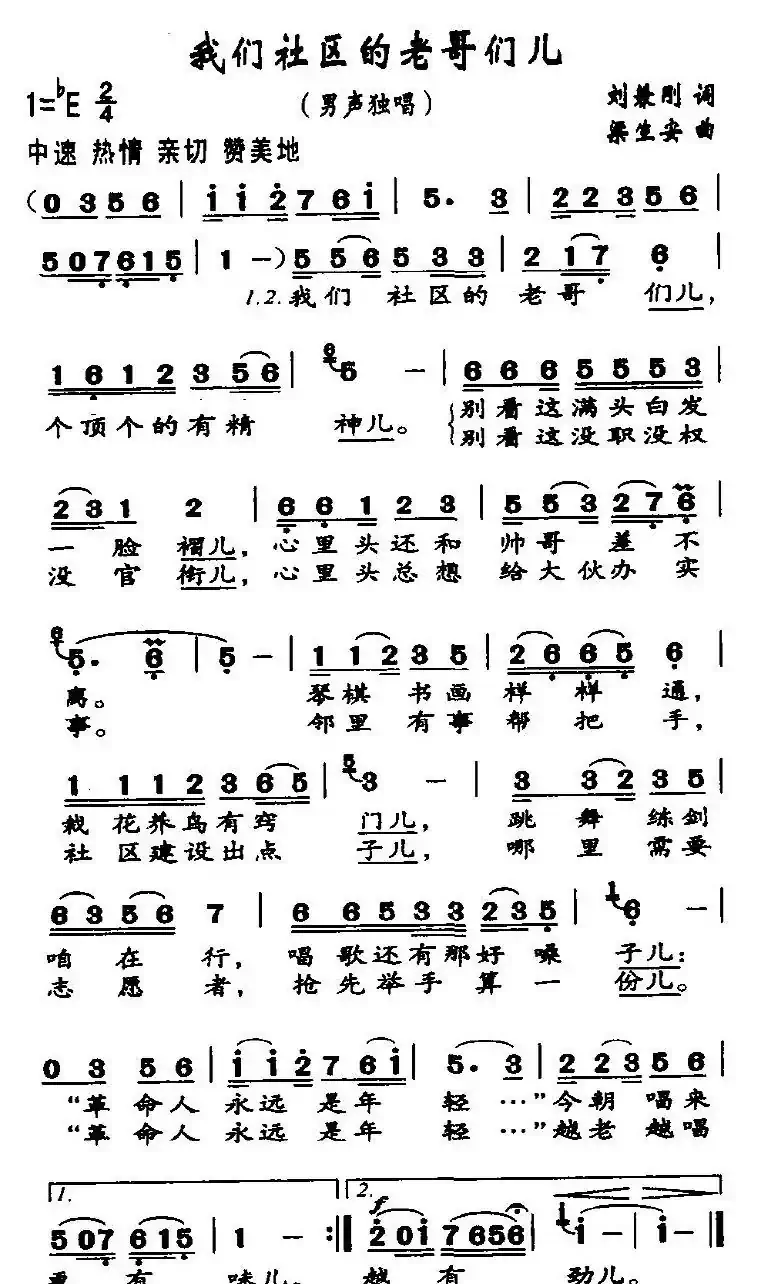 我们社区的老哥们儿
1=♭E 2/4
（男声独唱）
刘兼刚 词
梁生安 曲
中速 热情 亲切 赞美地
(0 3 5 6 | i i 2 7 6 i | 5. 3 | 2 2 3 5 6 |
5 0 7 6 1 5 | 1 –) 5 5 6 5 3 3 | 2 1 7 6 |
1.2.我们 社区的 老哥 们儿，
1 6 1 2 3 5 6 | 6 5 – | 6 6 6 5 5 5 3 |
个顶个的有精 神儿。 别看这满头白发
别看这没职没权
2 3 1 2 | 6 6 1 2 3 | 5 5 3 2 7 6 |
一 脸 褶儿，心里头还和 帅哥 差 不
没 官 衔儿，心里头总想 给大伙办 实
6 5. 6 | 5 – | 1 1 2 3 5 | 2 6 6 5 6 |
离。 琴棋 书画 样 样 通，
事。 邻里 有事 帮 把 手，
1 1 1 2 3 6 5 | 5 3 – | 3 3 2 3 5 |
栽 花养鸟有窍 门儿， 跳 舞 练剑
社 区建设出点 子儿， 哪 里 需要
6 3 5 6 7 | 6 6 5 3 3 2 3 5 | 1 6 – |
咱 在 行， 唱 歌还有那好 嗓 子儿：
志 愿 者， 抢 先举手 算 一 份儿。
0 3 5 6 | i i 2 7 6 i | 5. 3 | 2 2 3 5 6 |
“革 命人 永远 是年 轻 …”今朝 唱来
“革 命人 永远 是年 轻 …”越老 越唱
1. 2. f
5 0 7 6 1 5 | 1 – :| 2 0 i 7 6 5 6 | i – | i – |
更 有 味儿。 越 有 劲儿。